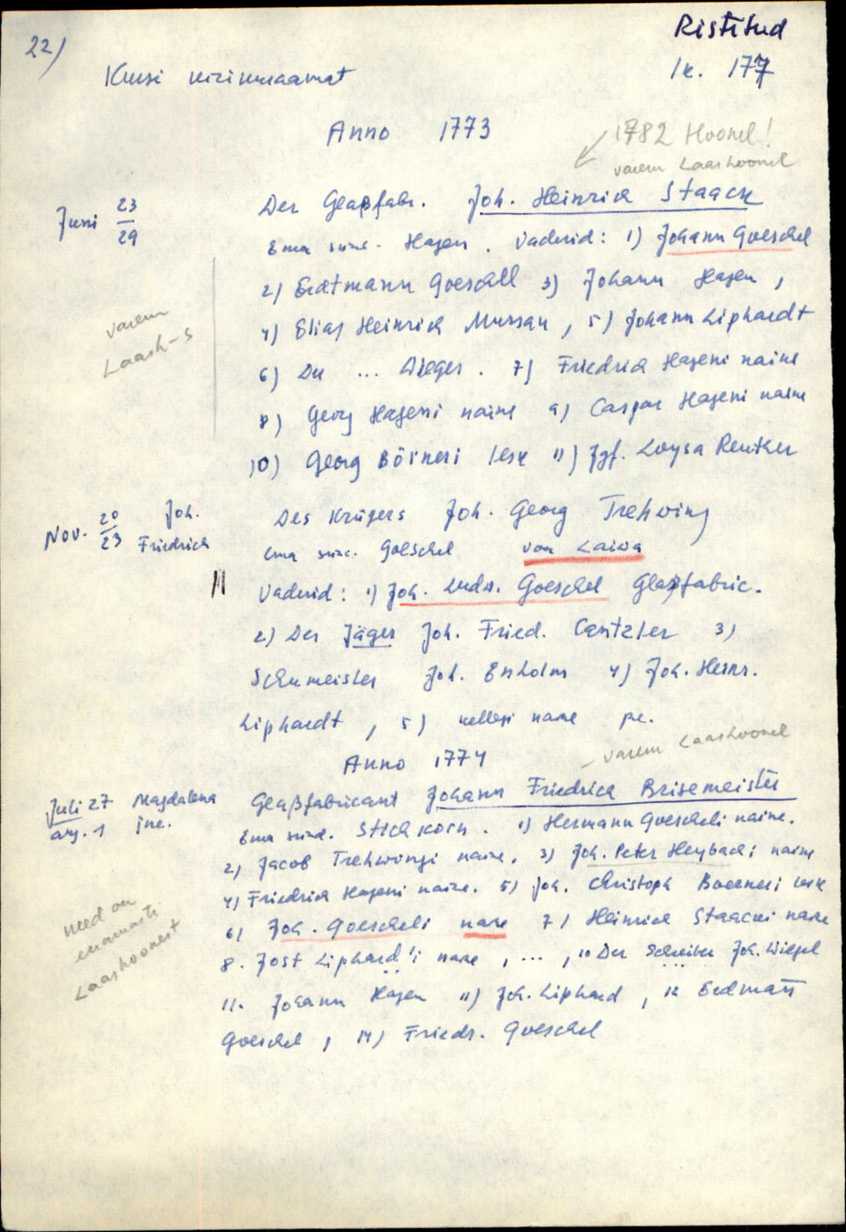 22)
Ristitud
Kursi kirikuraamat
lk. 177
Anno 1773
1782 Hoonel!
varem Laashoonel
Juni 23/29
Der Glaßfabr. Joh. Heinrich Staack
Ema sünd. Hagen. Vaderid: 1) Johann Goeschel
2) Erdtmann Goeschell 3) Johann Hagen,
varem
Laash-s
4) Elias Heinrich Mussau, 5) Johann Liphardt
6) Der ... Wieger. 7) Friedrich Hageni naine
8) Georg Hageni naine 9) Caspar Hageni naine
10) Georg Börneri lesk 11) Jgf. Loysa Reutker
Nov. 20/23 Joh. Friedrich
Des Krügers Joh. Georg Trehwing
ema sünd. Goeschel von Laiwa
Vaderid: 1) Joh. Ludw. Goeschel Glaßfabric.
2) Der Jäger Joh. Fried. Cantzler 3)
Schumeister Joh. Enholm 4) Joh. Heinr.
Liphardt, 5) kellegi naine jne.
Anno 1774
- varem Laashoonel
Juli 27 Magdalena
aug. 1 jne.
Glaßfabricant Johann Friedrich Brisemeister
Ema sünd. Stichkorn. 1) Hermann Goescheli naine.
2) Jacob Trehwingi naine, 3) Joh. Peter Heybachi naine
4) Friedrich Hageni naine. 5) Joh. Christoph Boerneri lesk
need on
enamasti
Laashoonest
6) Joh. Goescheli naine 7) Heinrich Staacki naine
8. Jost Liphard'i naine, ..., 10 Der Schreiber Joh. Wiegel
11. Johann Hagen 11) Joh. Liphard, 12 Erdmann
Goeschel, 14) Friedr. Goeschel